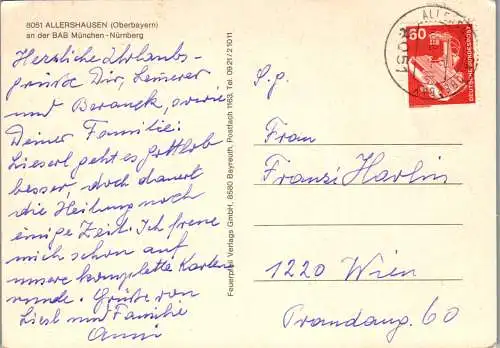 8051 ALLERSHAUSEN (Oberbayern)
an der BAB München - Nürnberg
Herzliche Urlaubs-
grüße Dir,
und sowie
Deiner Familie!
Lieserl geht es gottlob
besser doch dauert
die Heilung noch
einige Zeit. Ich freue
mich schon auf
unsere komplette Karten
runde. Grüße von
Liesl und Familie
Anni
Feuerpfeil Verlags GmbH, 8580 Bayreuth, Postfach 1163, Tel. 09 21 / 2 10 11
8051
60
DEUTSCHE BUNDESPOST
S.g.
Frau
Franzi Harlin
1220 Wien
60